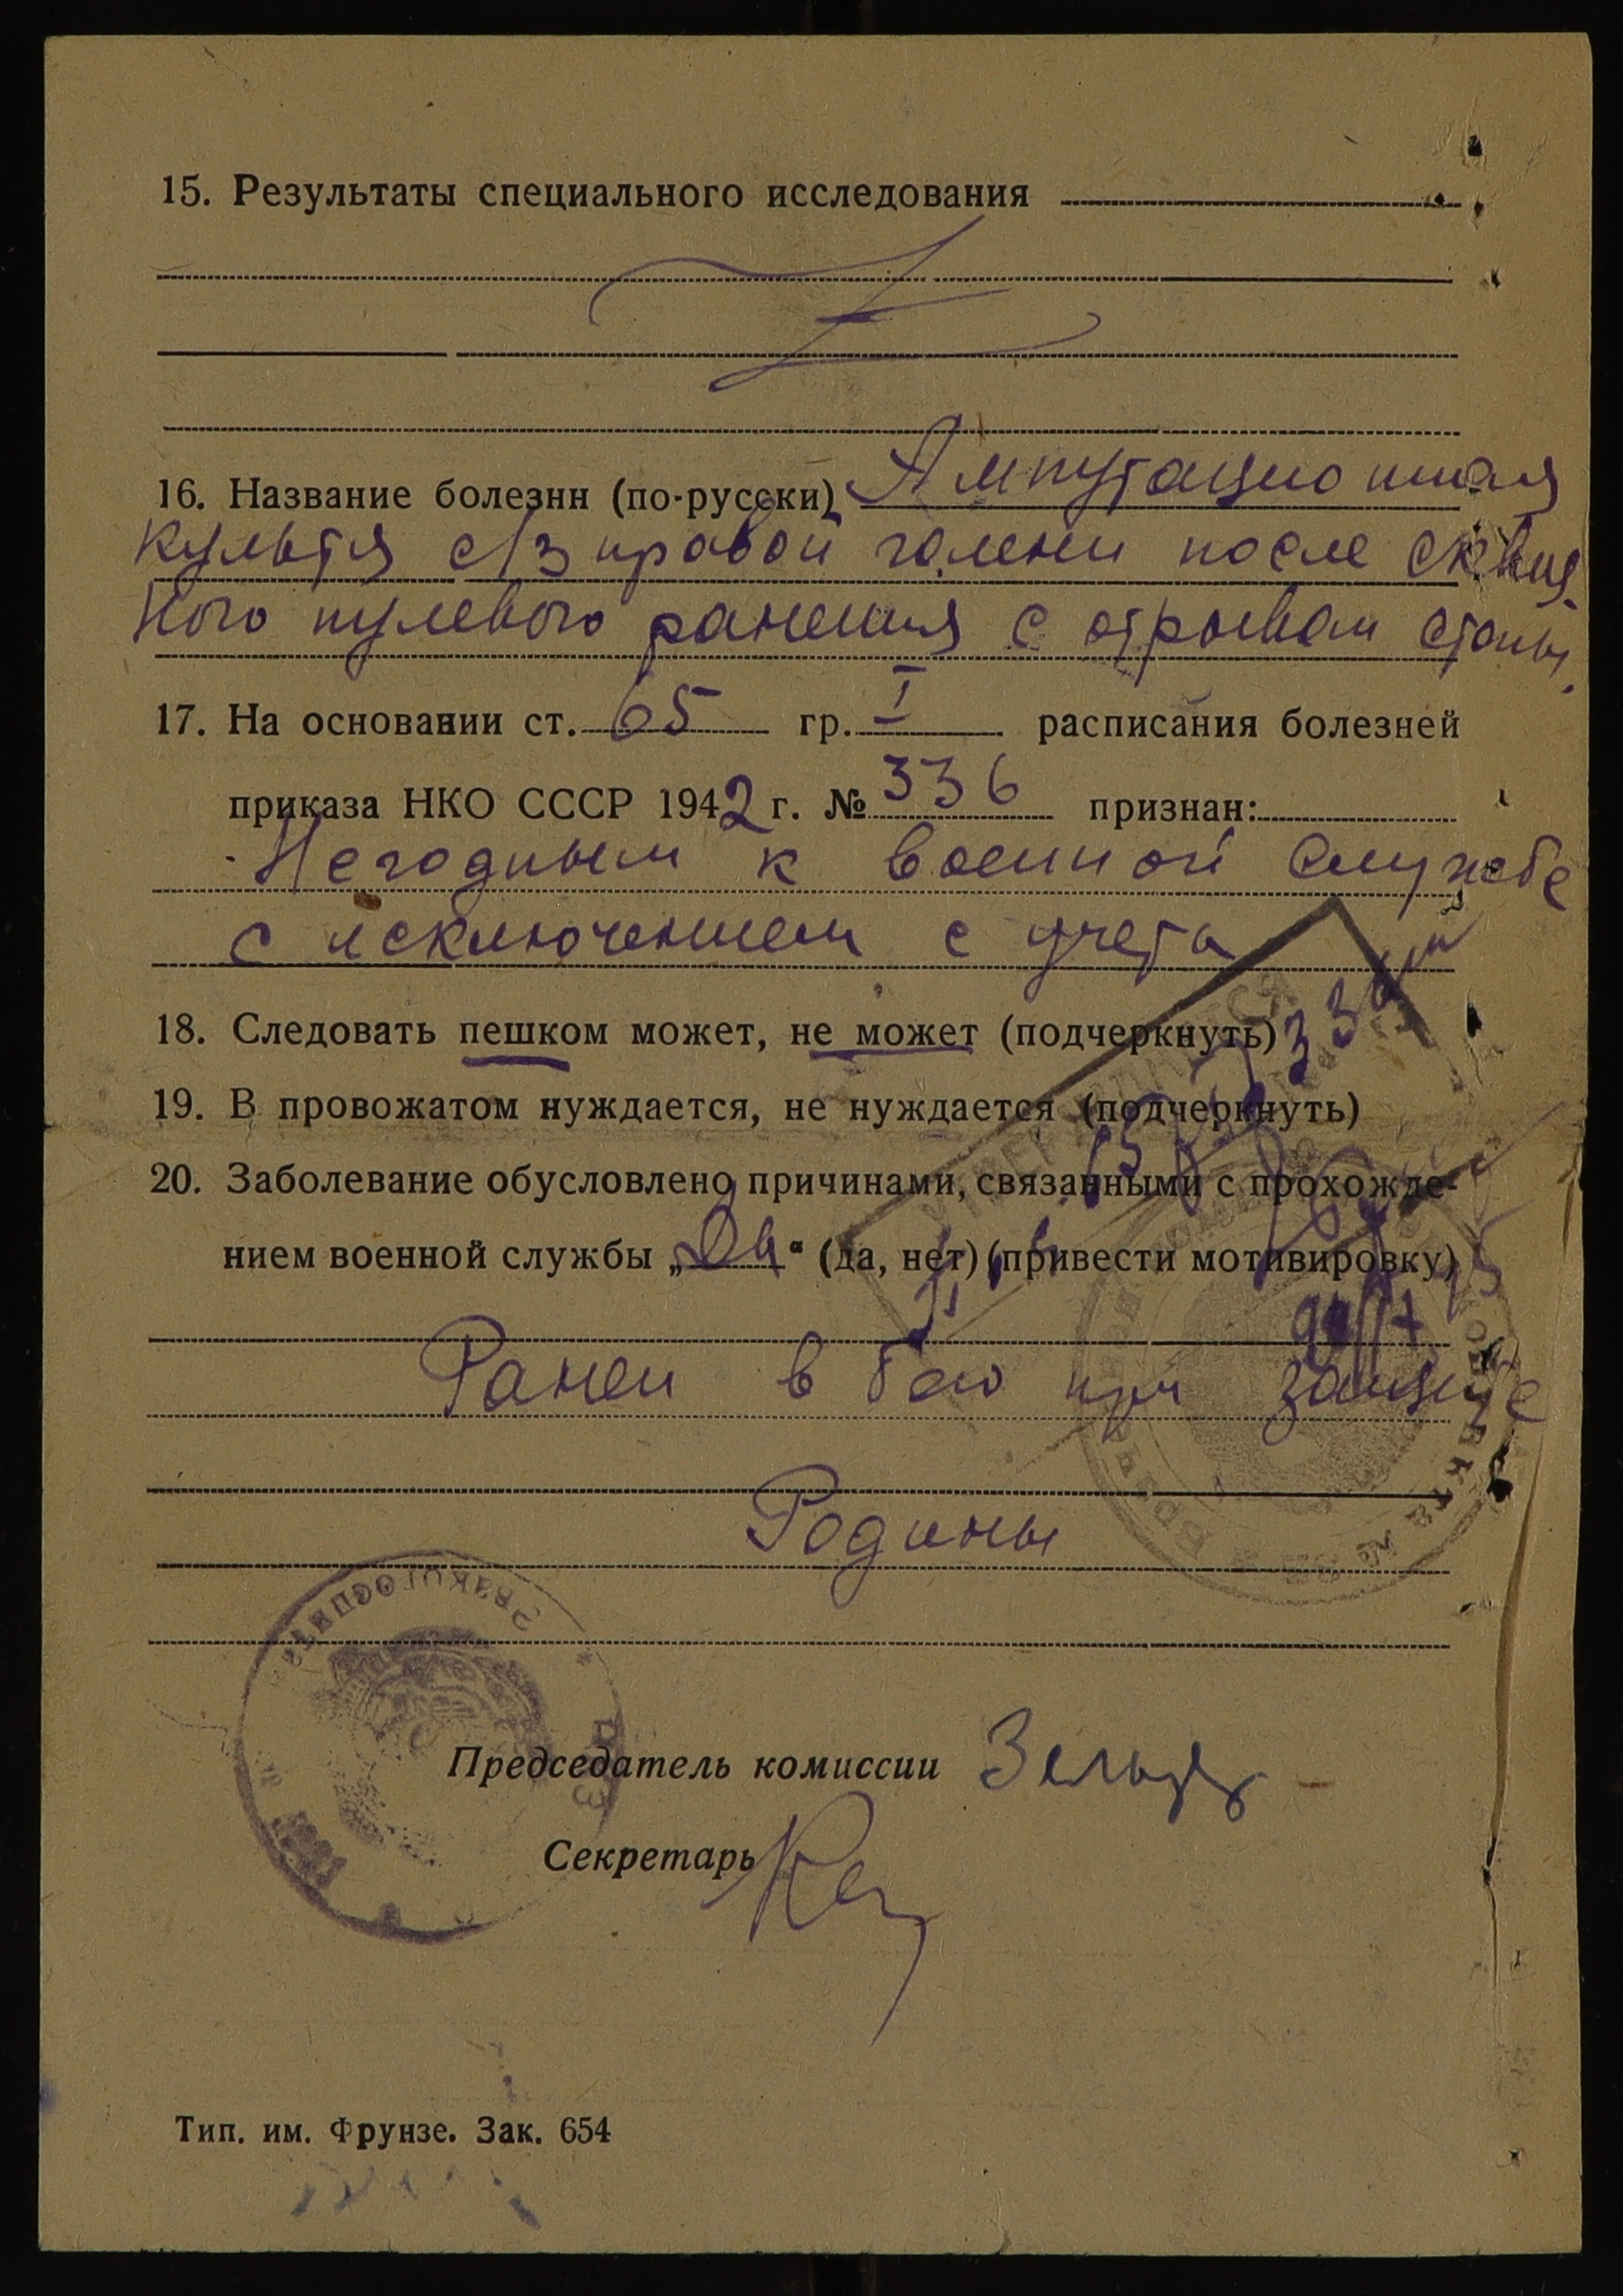 15. Результаты специального исследования
16. Название болезни (по-русски) Ампутационная
культя с/з правой голени после сквоз
ного пулевого ранения с отрывом стопы.
17. На основании ст. 65 гр. I расписания болезней
приказа НКО СССР 1942 г. № 336 признан:
Негодным к военной службе
с исключением с учета
18. Следовать пешком может, не может (подчеркнуть)
19. В провожатом нуждается, не нуждается (подчеркнуть)
20. Заболевание обусловлено причинами, связанными с прохожде-
нием военной службы „Да“ (да, нет) (привести мотивировку)
Ранен в бою при защите
Родины
Председатель комиссии
Секретарь
Тип. им. Фрунзе. Зак. 654